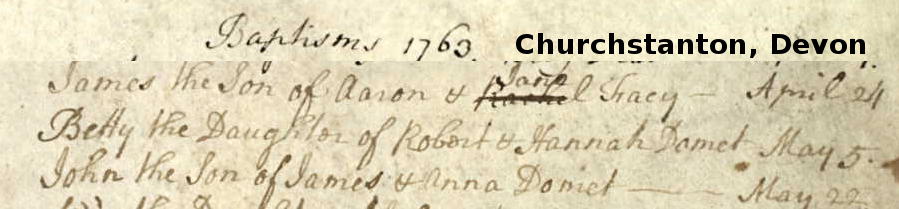 Baptisms 1763. Churchstanton, Devon
James the Son of Aaron & Jane Rachel Tracy — April 24
Betty the Daughter of Robert & Hannah Domet May 5.
John the Son of James & Anna Domet — May 22
the Daughter of